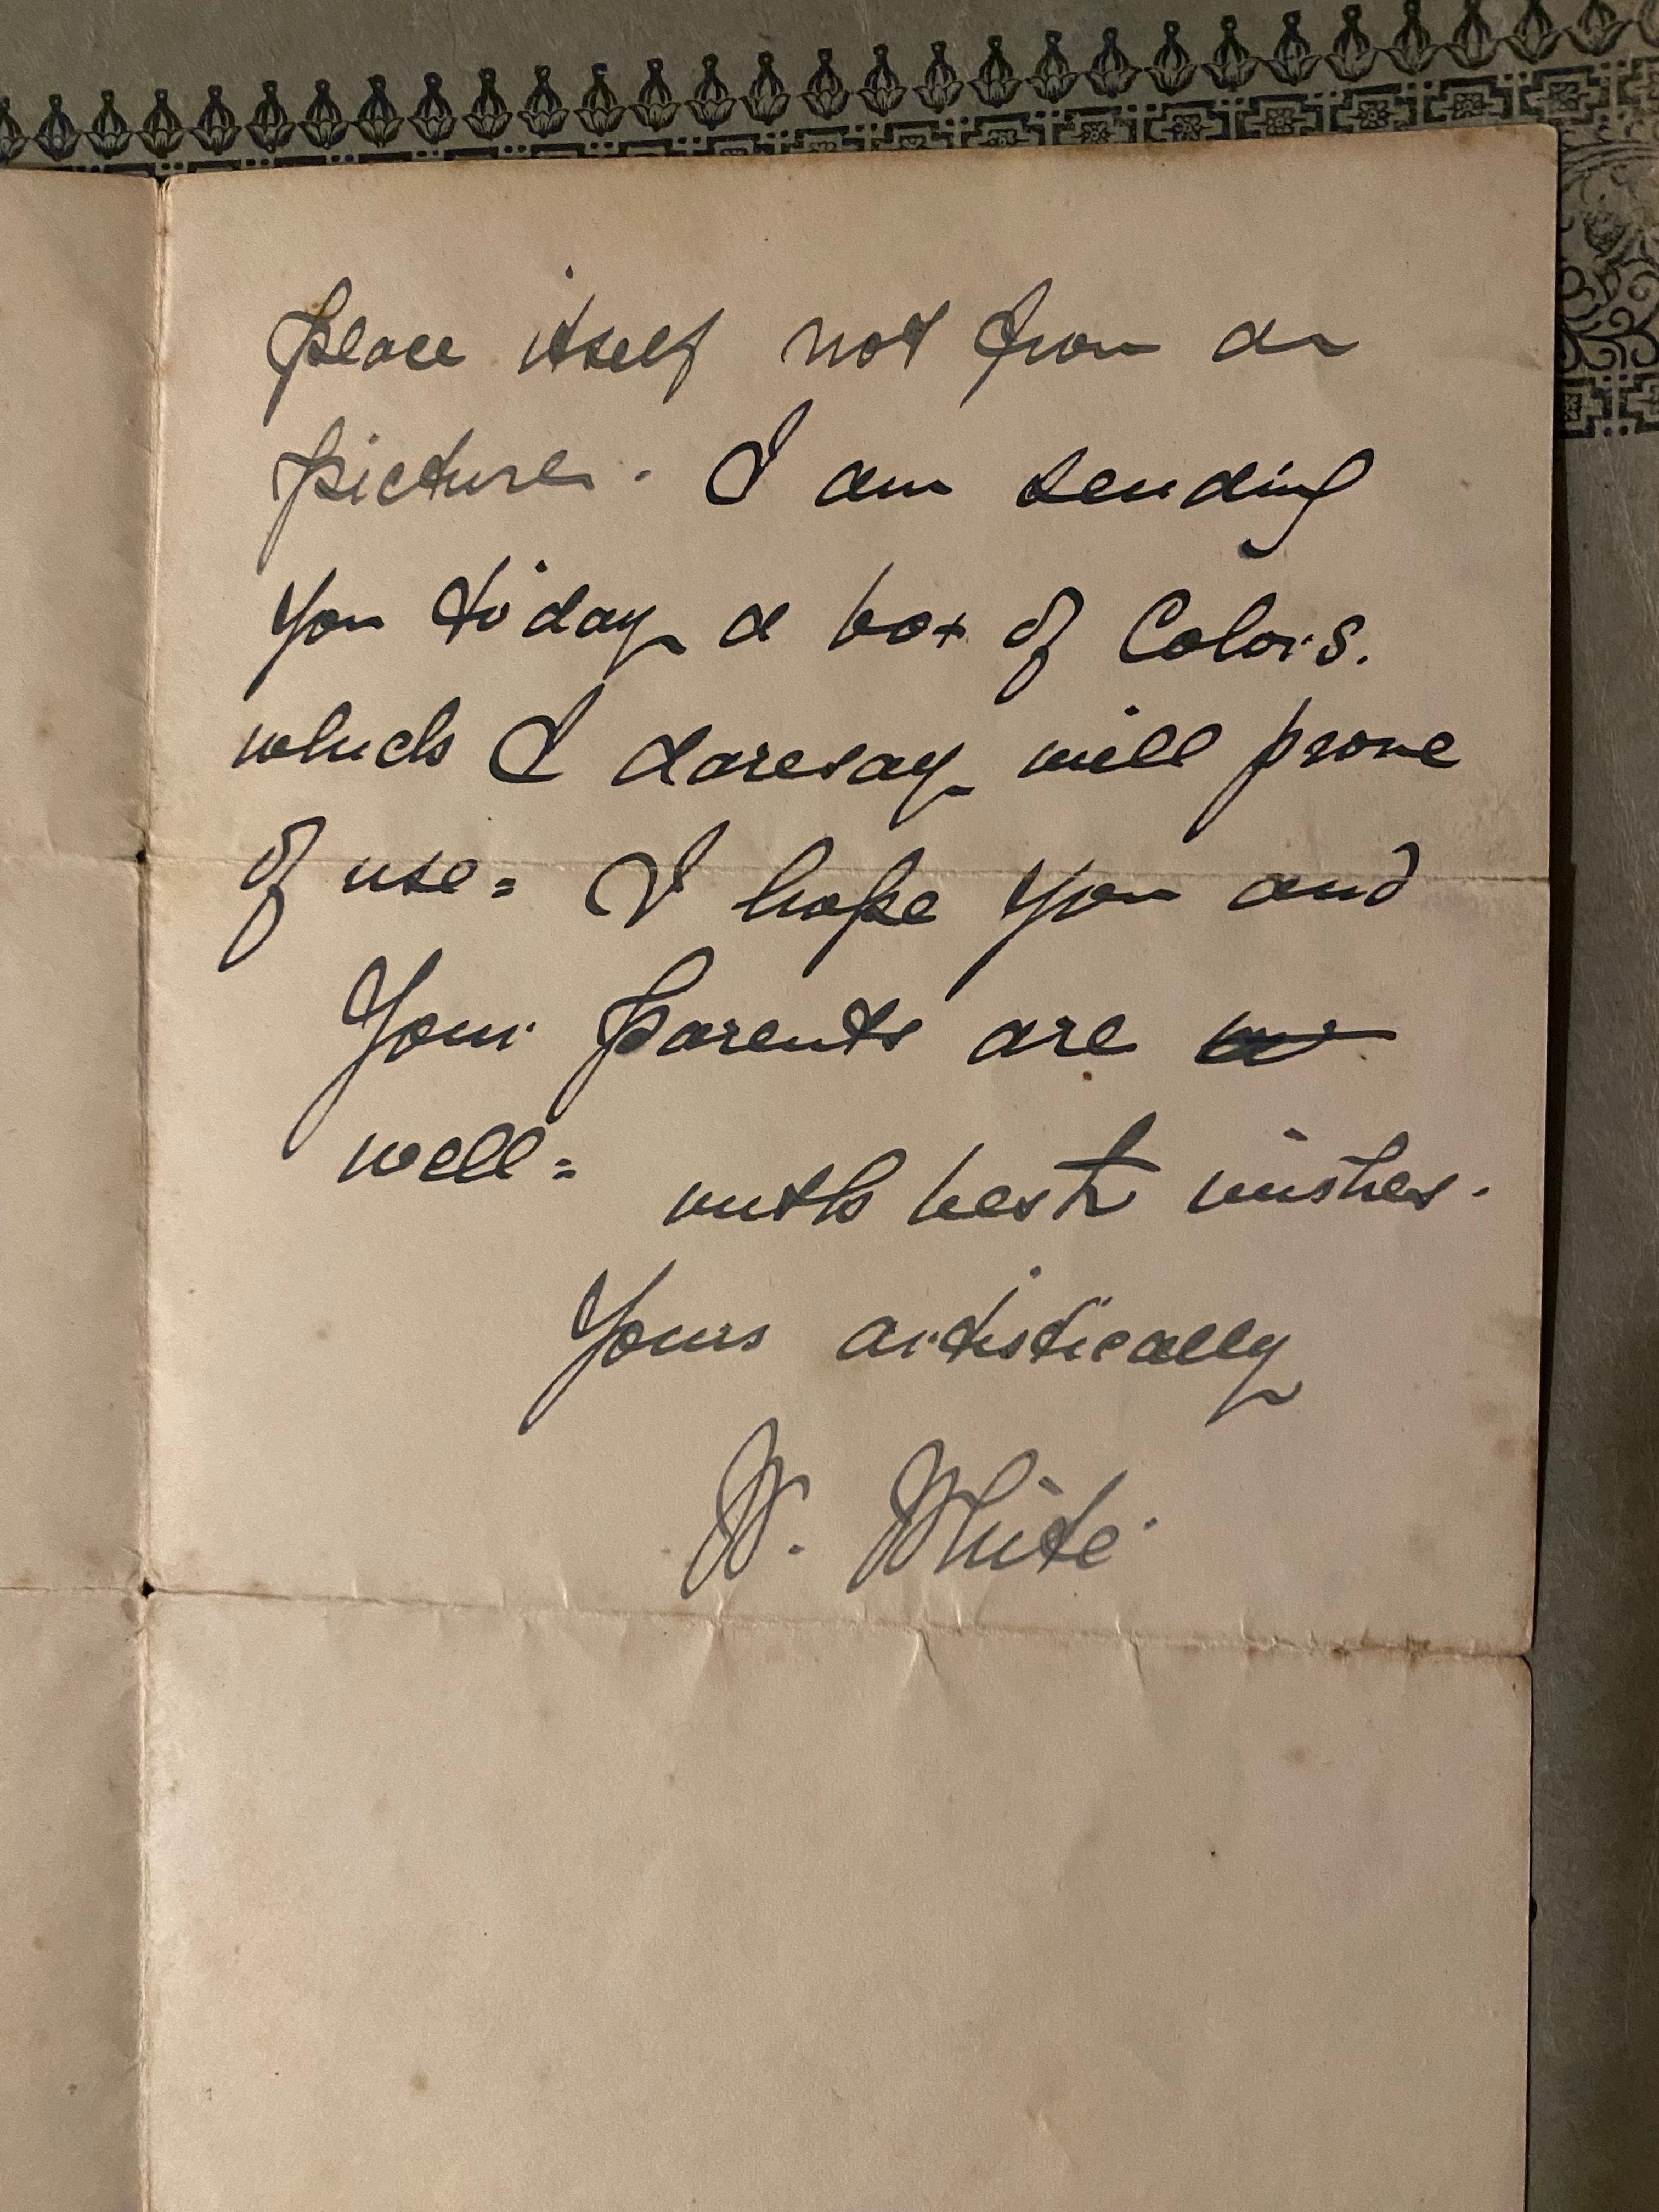 place itself not from a
picture. I am sending
you today a box of Colors.
which I daresay will prove
of use= I hope you and
Your parents are
well=
with best wishes.
Yours artistically
W. White.